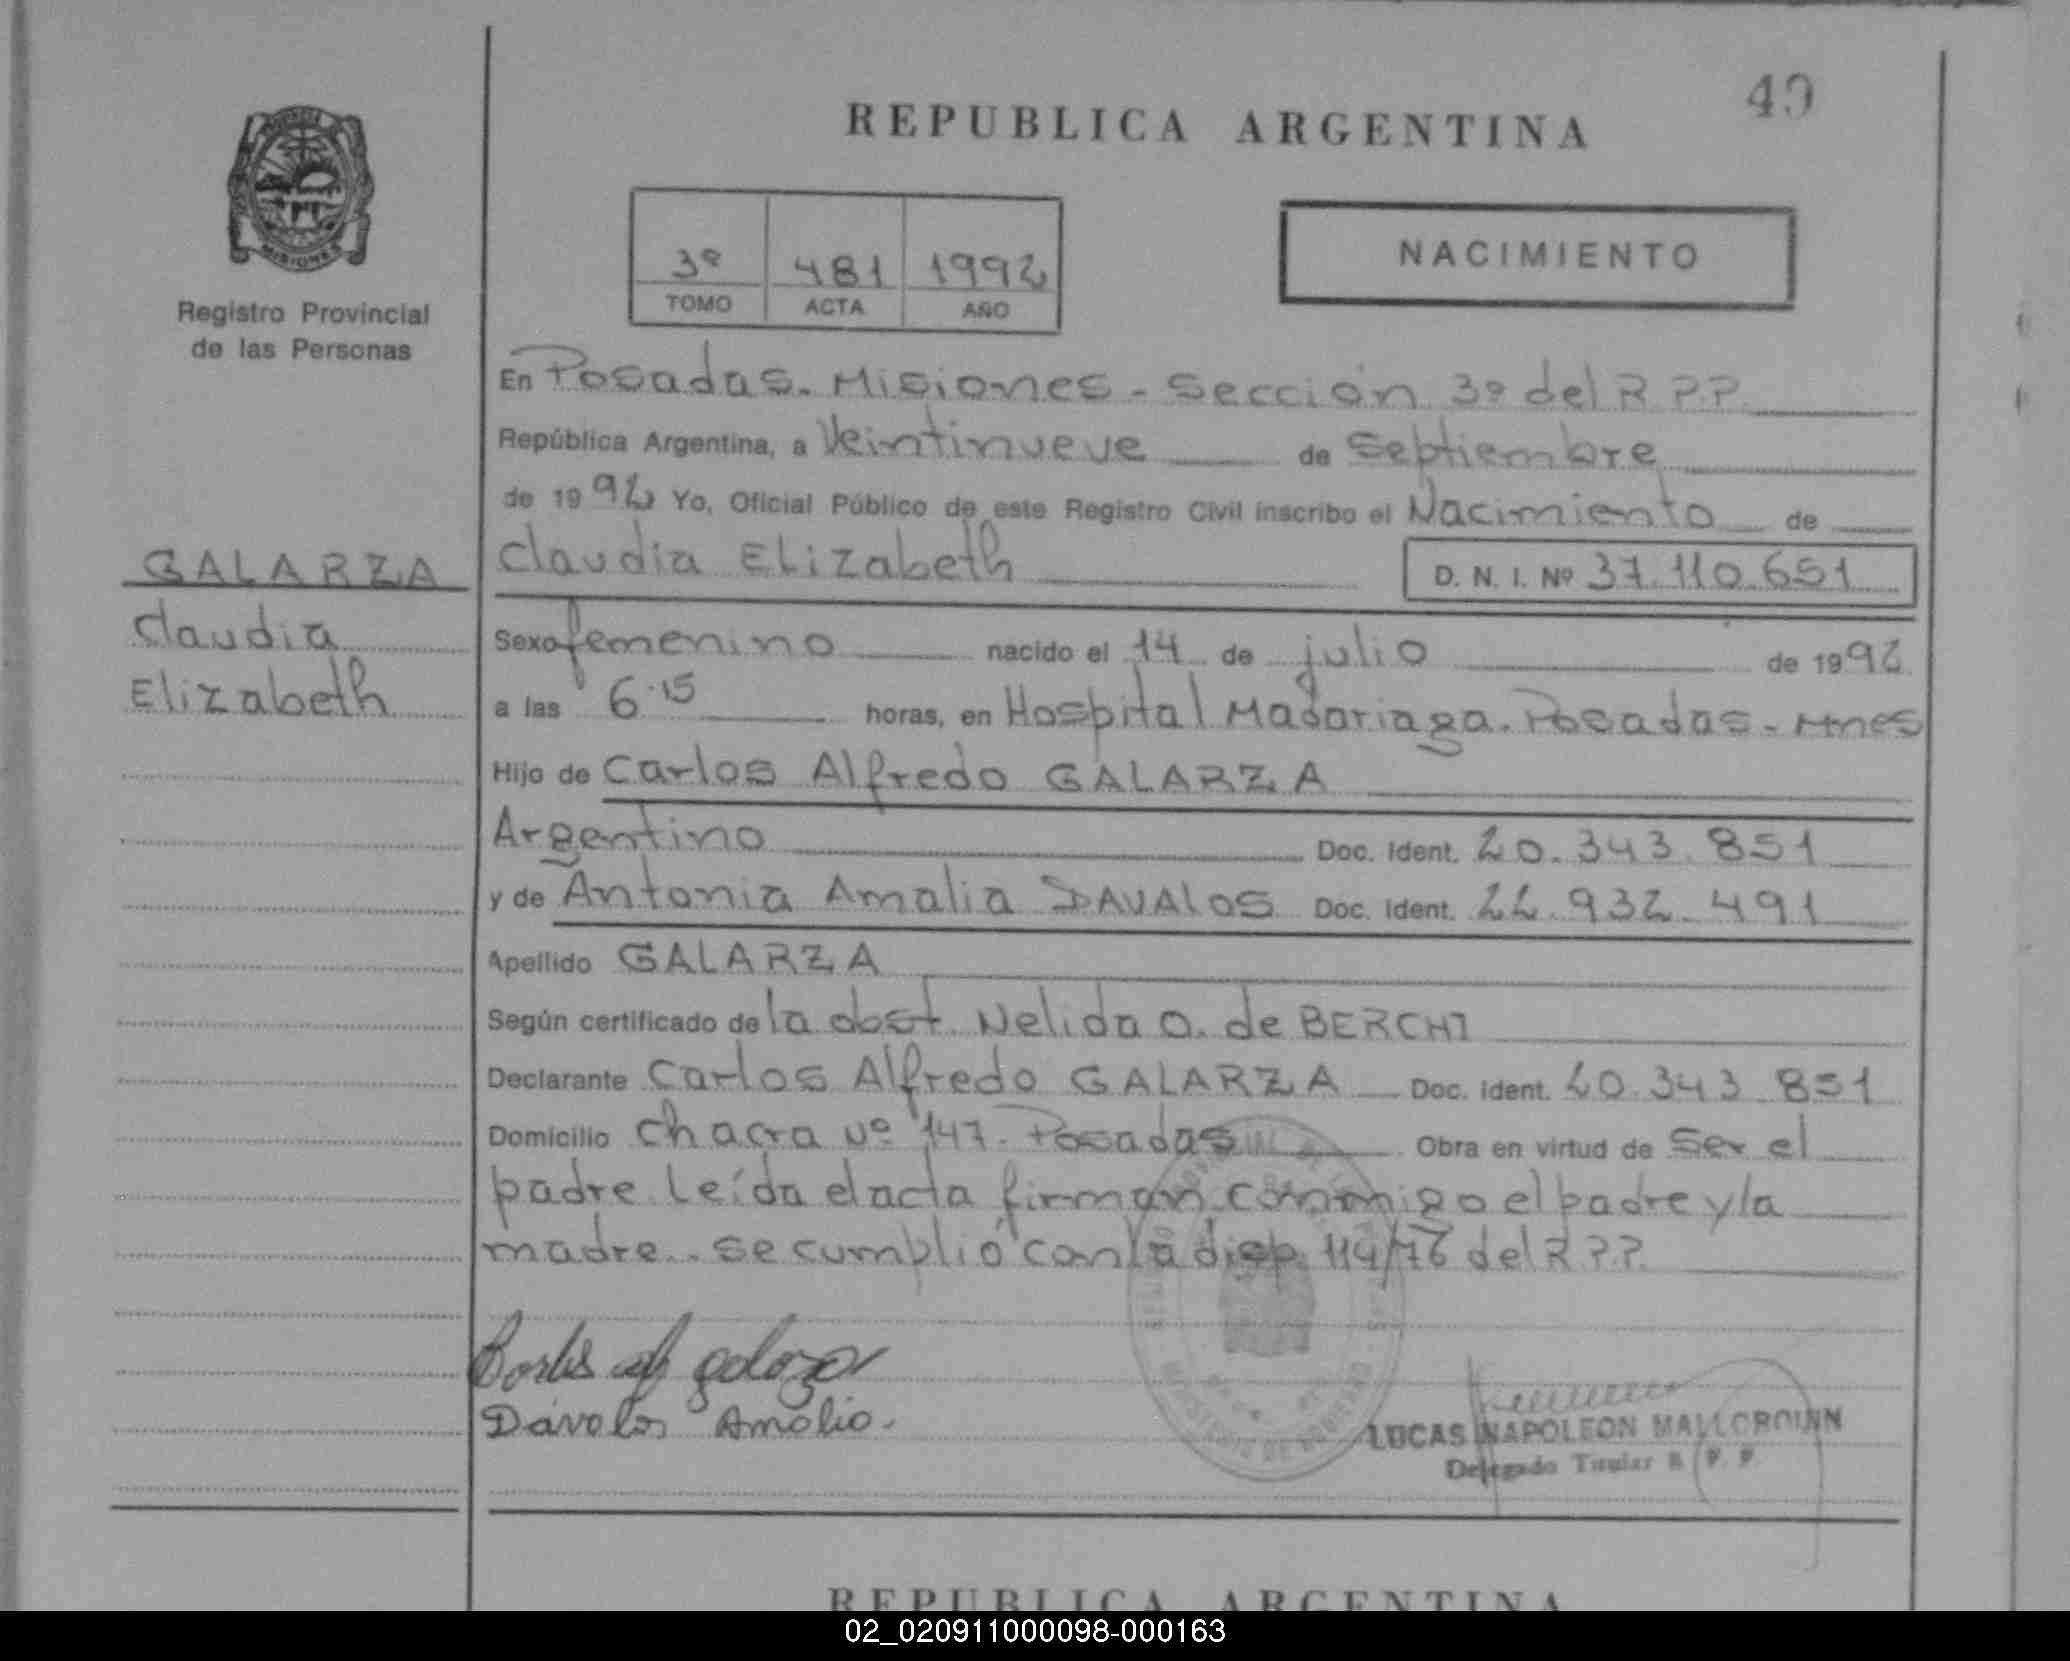 49
REPUBLICA ARGENTINA
MISIONES
Registro Provincial
de las Personas
3º 481 1992
TOMO ACTA AÑO
NACIMIENTO
En Posadas. Misiones - Sección 3º del R.P.P.
República Argentina, a Veintinueve de Septiembre
de 1992 Yo, Oficial Público de este Registro Civil inscribo el Nacimiento de
Claudia Elizabeth D. N. I. Nº 37.110.651
GALARZA
Claudia
Elizabeth
Sexo femenino nacido el 14 de julio de 1992
a las 6.15 horas, en Hospital Madariaga. Posadas - Mnes
Hijo de Carlos Alfredo GALARZA
Argentino Doc. Ident. 20.343.851
y de Antonia Amalia DAVALOS Doc. Ident. 22.932.491
Apellido GALARZA
Según certificado de la obst. Nelida O. de BERCHI
Declarante Carlos Alfredo GALARZA Doc. Ident. 20.343.851
Domicilio Chacra Nº 147. Posadas Obra en virtud de Ser el
padre. Leída el acta firman conmigo el padre y la
madre. Se cumplió con la disp. 114/76 del R.P.P.
Davalos Amalia.
LUCAS NAPOLEON MALLORQUIN
Delegado Titular R. P. P.
REPUBLICA ARGENTINA
02_020911000098-000163